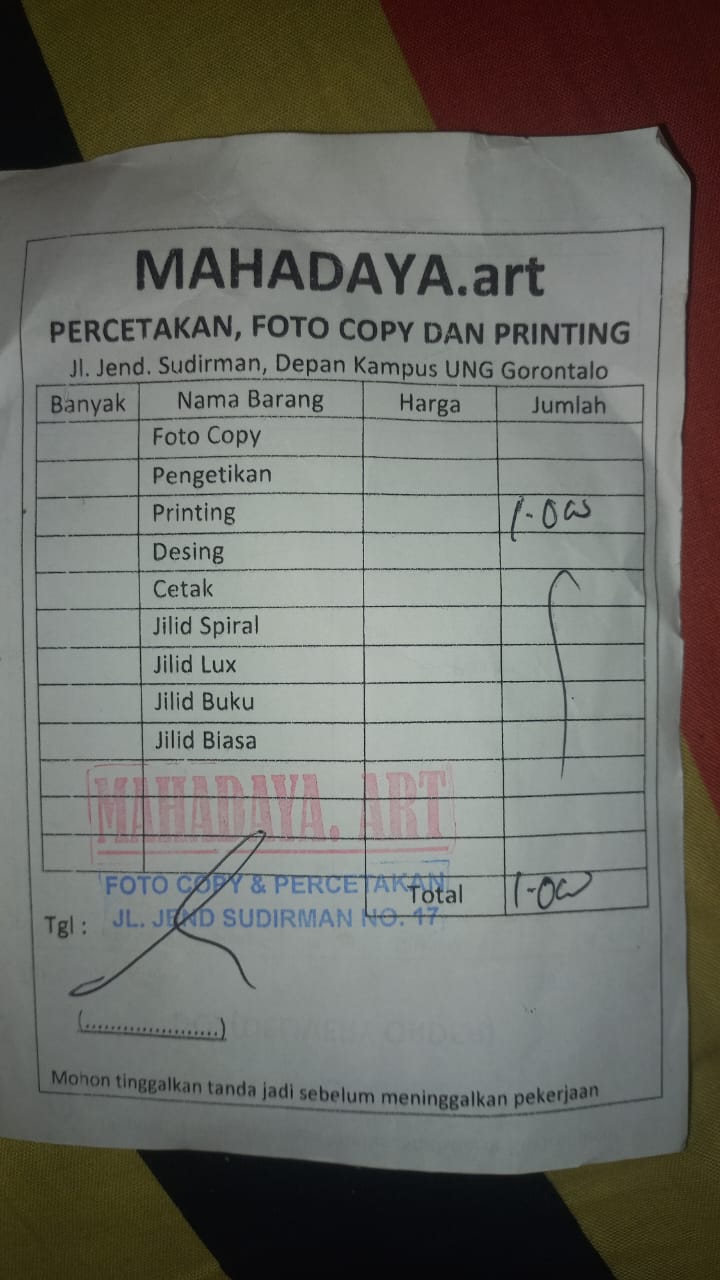 MAHADAYA.art
PERCETAKAN, FOTO COPY DAN PRINTING
Jl. Jend. Sudirman, Depan Kampus UNG Gorontalo
Banyak Nama Barang Harga Jumlah
Foto Copy
Pengetikan
Printing
Desing
Cetak
Jilid Spiral
Jilid Lux
Jilid Buku
Jilid Biasa
MAHADAYA. ART
FOTO COPY & PERCETAKAN
Total
Tgl : JL. JEND SUDIRMAN NO. 47
(.....................)
Mohon tinggalkan tanda jadi sebelum meninggalkan pekerjaan